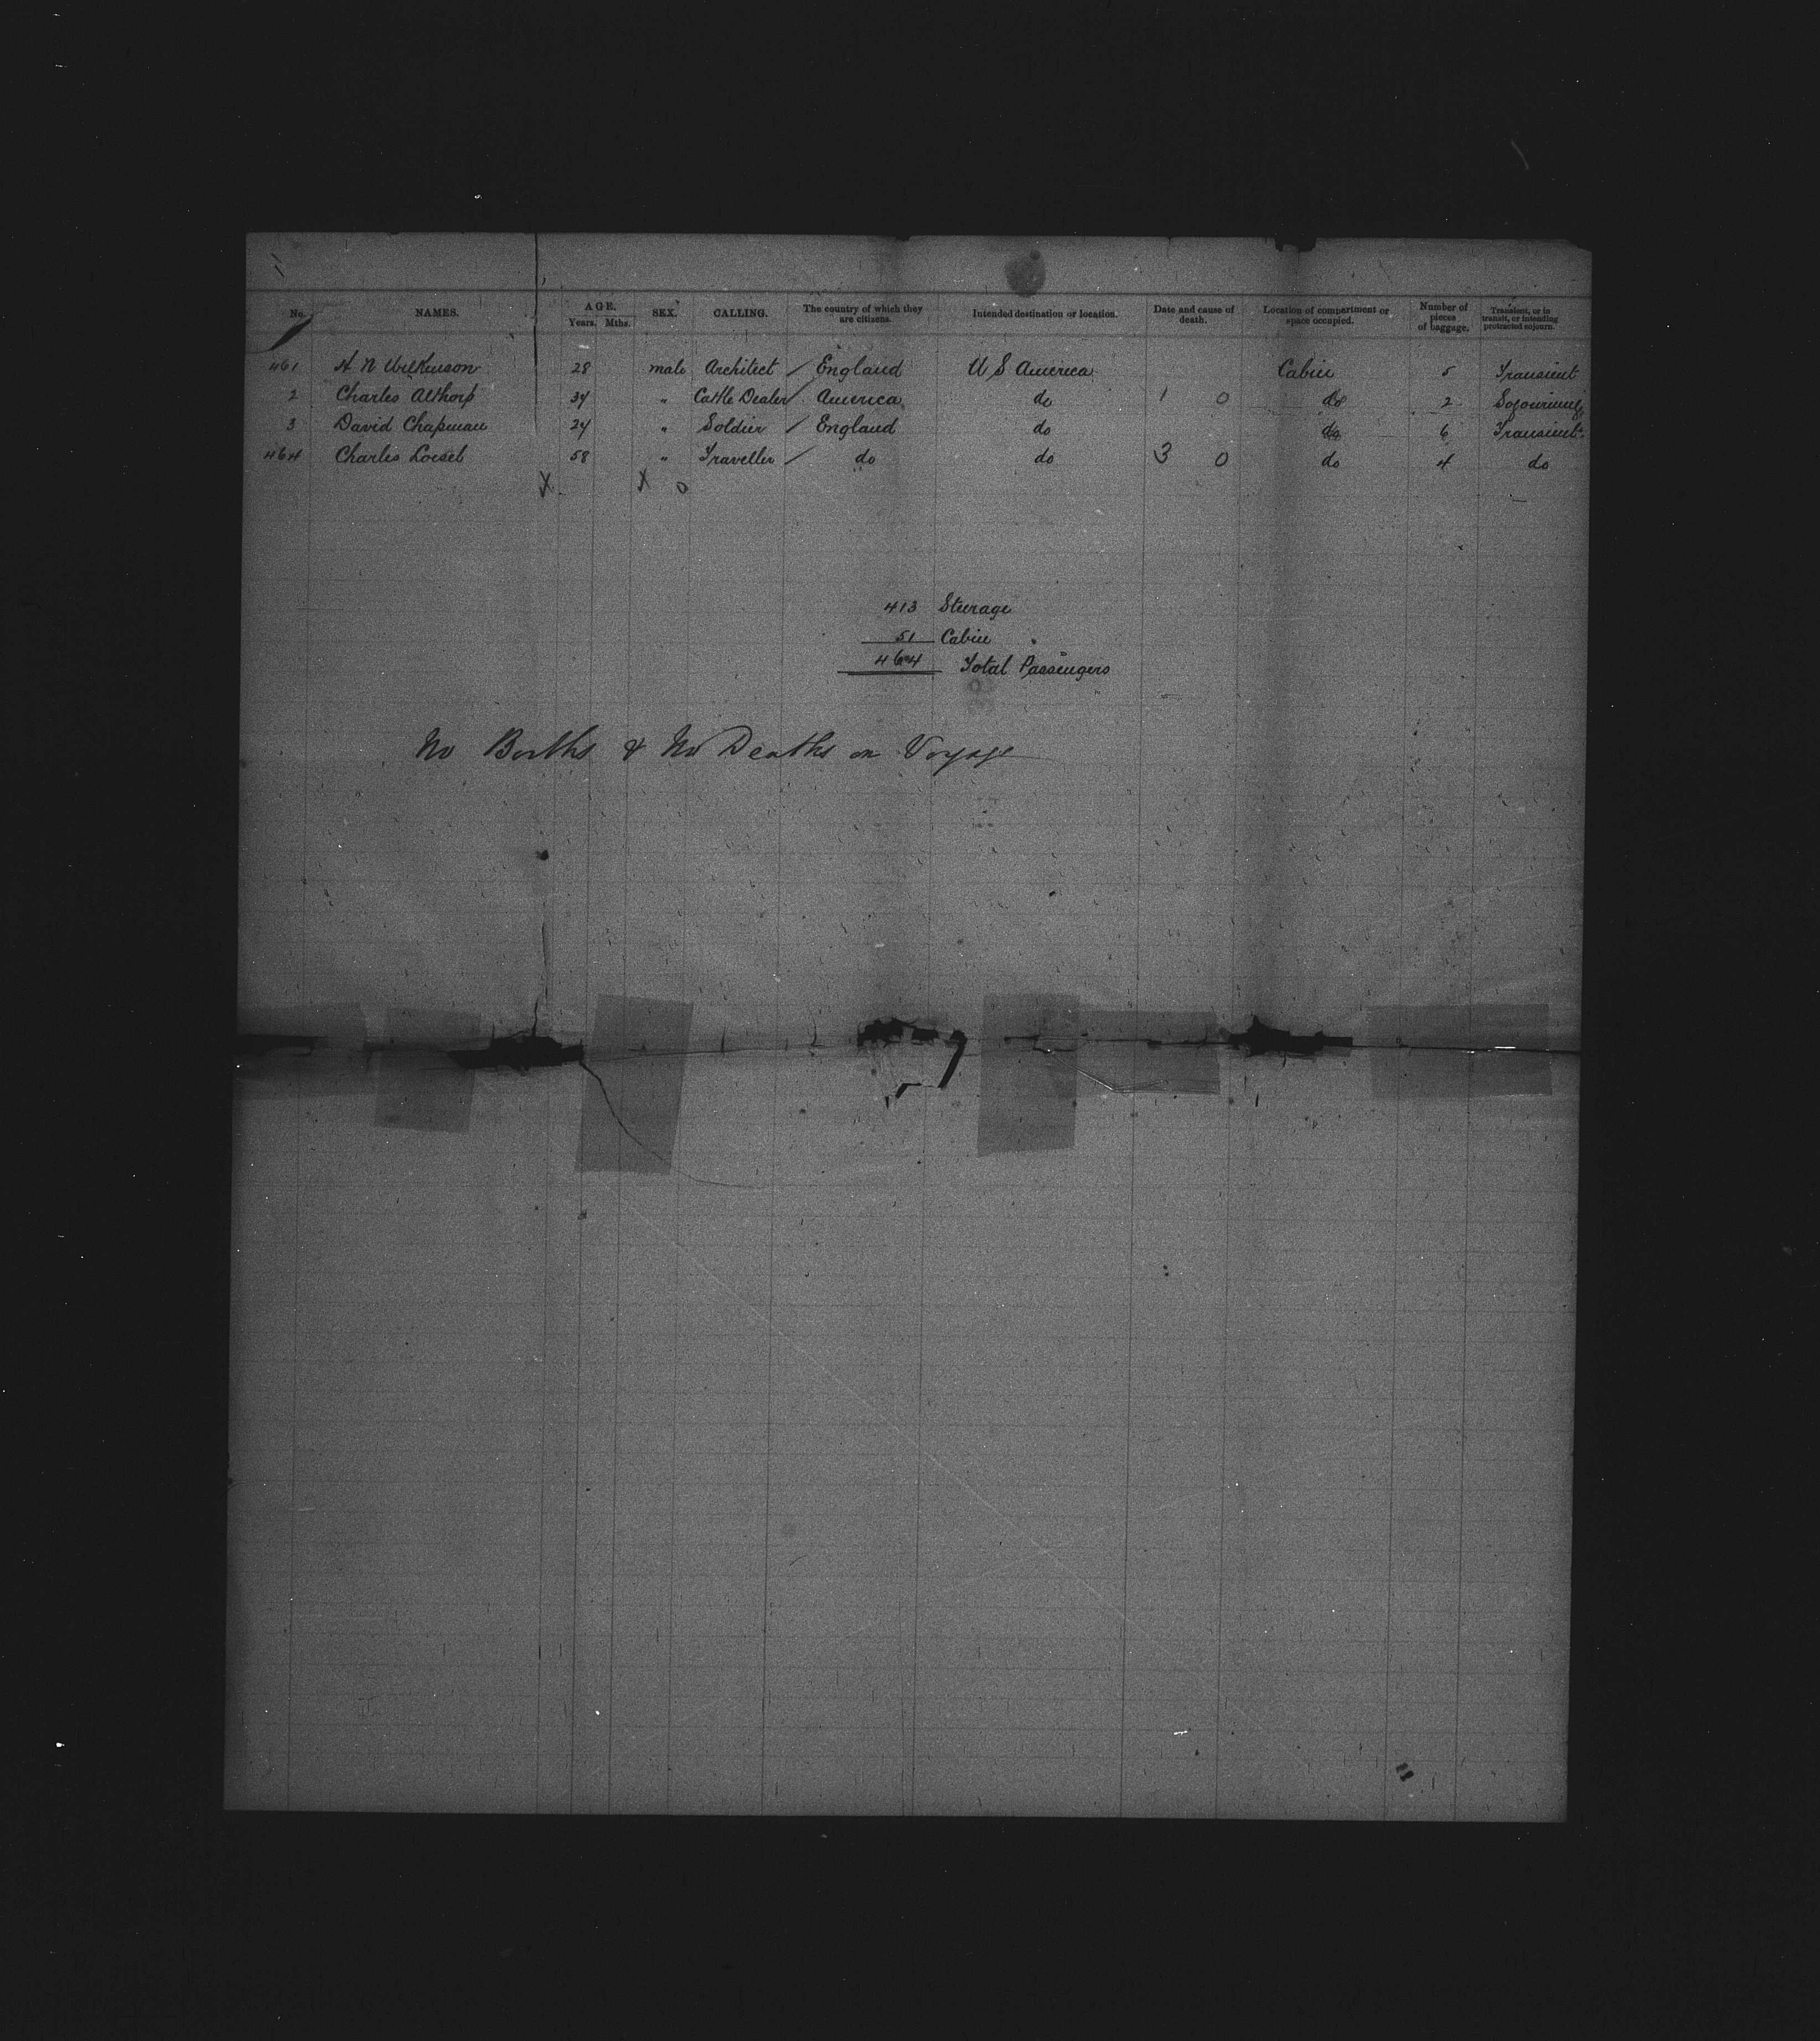 No. NAMES. AGE. Years. Mths. SEX. CALLING. The country of which they are citizens. Intended destination or location. Date and cause of death. Location of compartment or space occupied. Number of pieces of baggage. Transient, or in transit, or intending protracted sojourn.
461 H N Wilkinson 28 male Architect / England U S America Cabin 5 Transient
2 Charles Althorp 34 " Cattle Dealer / America do 1 0 do 2 Sojourning
3 David Chapman 24 " Soldier / England do do 6 Transient
464 Charles Loeseb 58 " Traveller / do do 3 0 do 4 do
X X 0
413 Steerage
51 Cabin
464 Total Passengers
No Births & No Deaths on Voyage